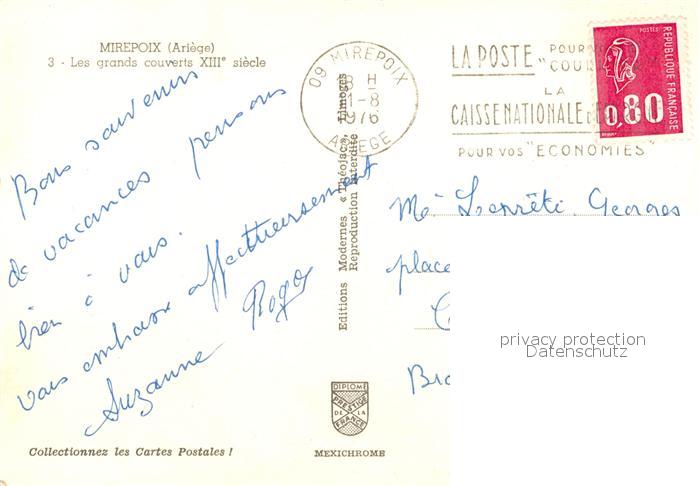 MIREPOIX (Ariège)
3 - Les grands couverts XIIIe siècle
Bons souvenirs
de vacances pensons
bien à vous.
vous embrasse affectueusement
Suzanne Roger
Collectionnez les Cartes Postales !
Editions Modernes « Théojac », Limoges
Reproduction Interdite
DIPLOME
PRESTIGE
DE LA
FRANCE
MEXICHROME
09 MIREPOIX
H
1-8
1976
ARIEGE
LA POSTE POUR
LA
CAISSE NATIONALE
POUR VOS "ECONOMIES"
POSTES
REPUBLIQUE FRANÇAISE
0,80
Georges
place
privacy protection
Datenschutz